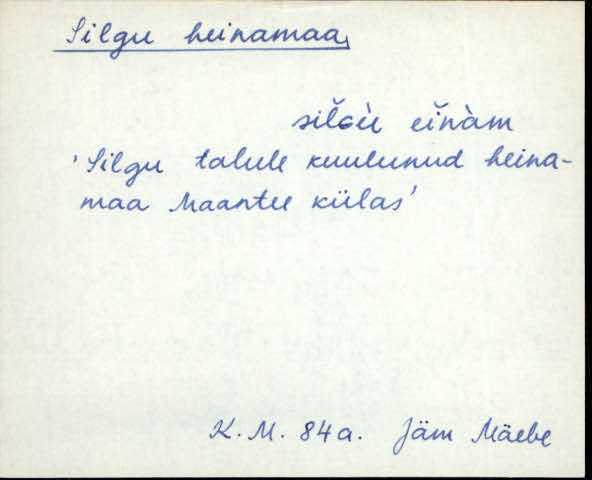 Silgu heinamaa,
silɢù eìnàm
'Silgu talule kuulunud heina-
maa Maantee külas'
K. M. 84 a. Jäm Mäebe